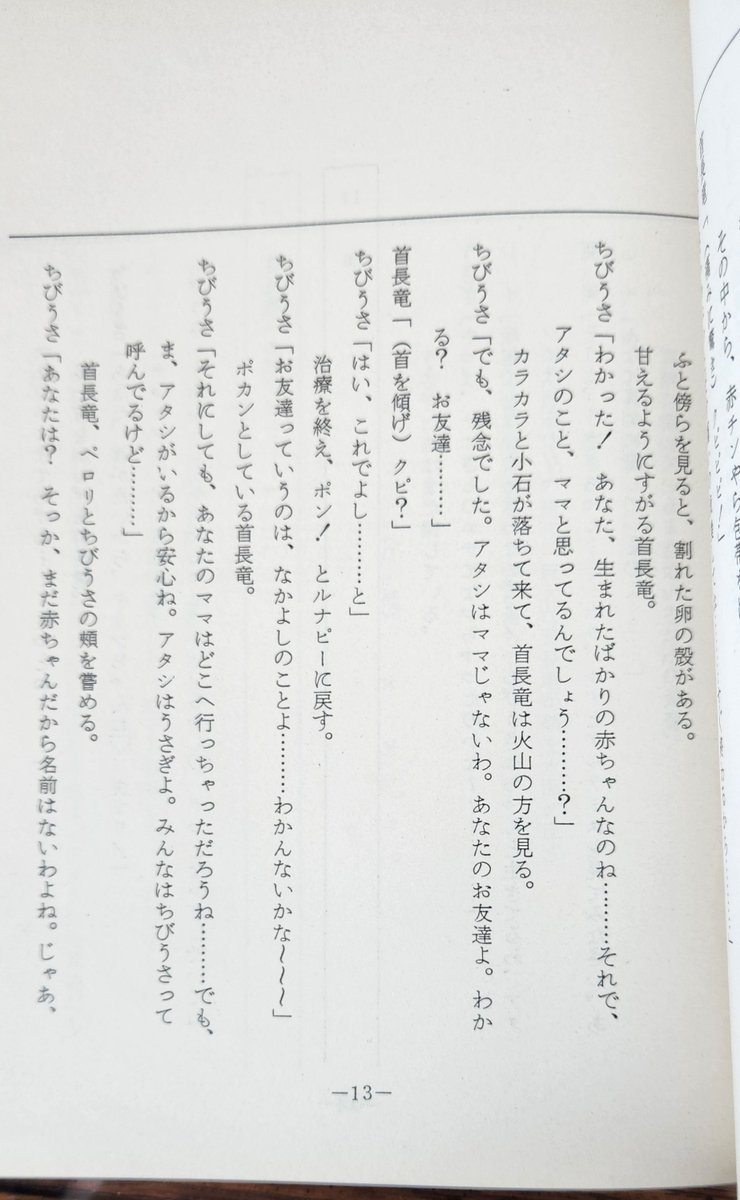 その中から、赤チンやら包帯
ふと傍らを見ると、割れた卵の殻がある。
甘えるようにすがる首長竜。
ちびうさ「わかった！　あなた、生まれたばかりの赤ちゃんなのね………それで、
アタシのこと、ママと思ってるんでしょう………？」
カラカラと小石が落ちて来て、首長竜は火山の方を見る。
ちびうさ「でも、残念でした。アタシはママじゃないわ。あなたのお友達よ。わか
る？　お友達………」
首長竜「（首を傾げ）クピ？」
ちびうさ「はい、これでよし………と」
治療を終え、ポン！　とルナピーに戻す。
ちびうさ「お友達っていうのは、なかよしのことよ………わかんないかな～～～」
ポカンとしている首長竜。
ちびうさ「それにしても、あなたのママはどこへ行っちゃっただろうね………でも、
ま、アタシがいるから安心ね。アタシはうさぎよ。みんなはちびうさって
呼んでるけど………」
首長竜、ペロリとちびうさの頬を嘗める。
ちびうさ「あなたは？　そっか、まだ赤ちゃんだから名前はないわよね。じゃあ、
—13—